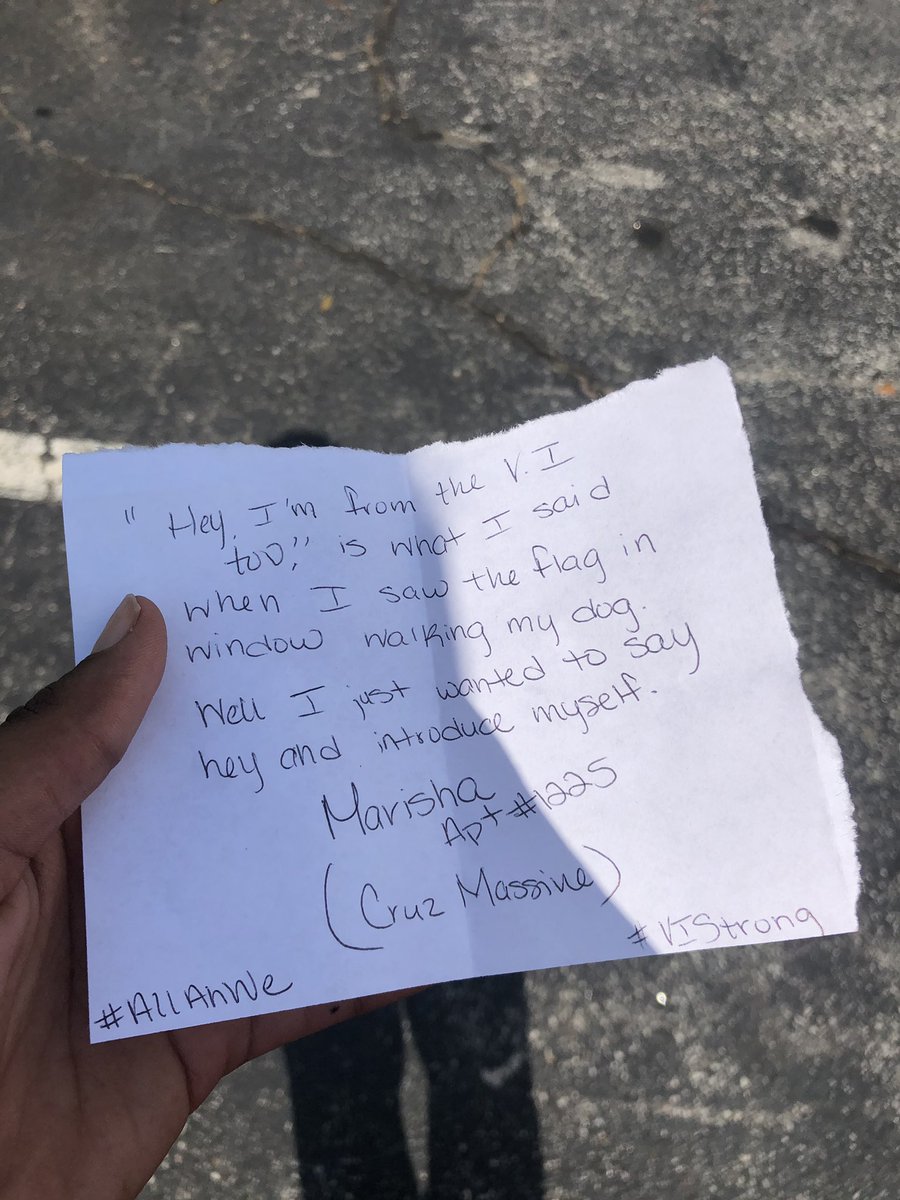 " Hey, I'm from the V.I
too," is what I said
when I saw the flag in
window walking my dog.
Well I just wanted to say
hey and introduce myself.
Marisha
Apt #1225
(Cruz Massive)
#VIStrong
#AllAhWe